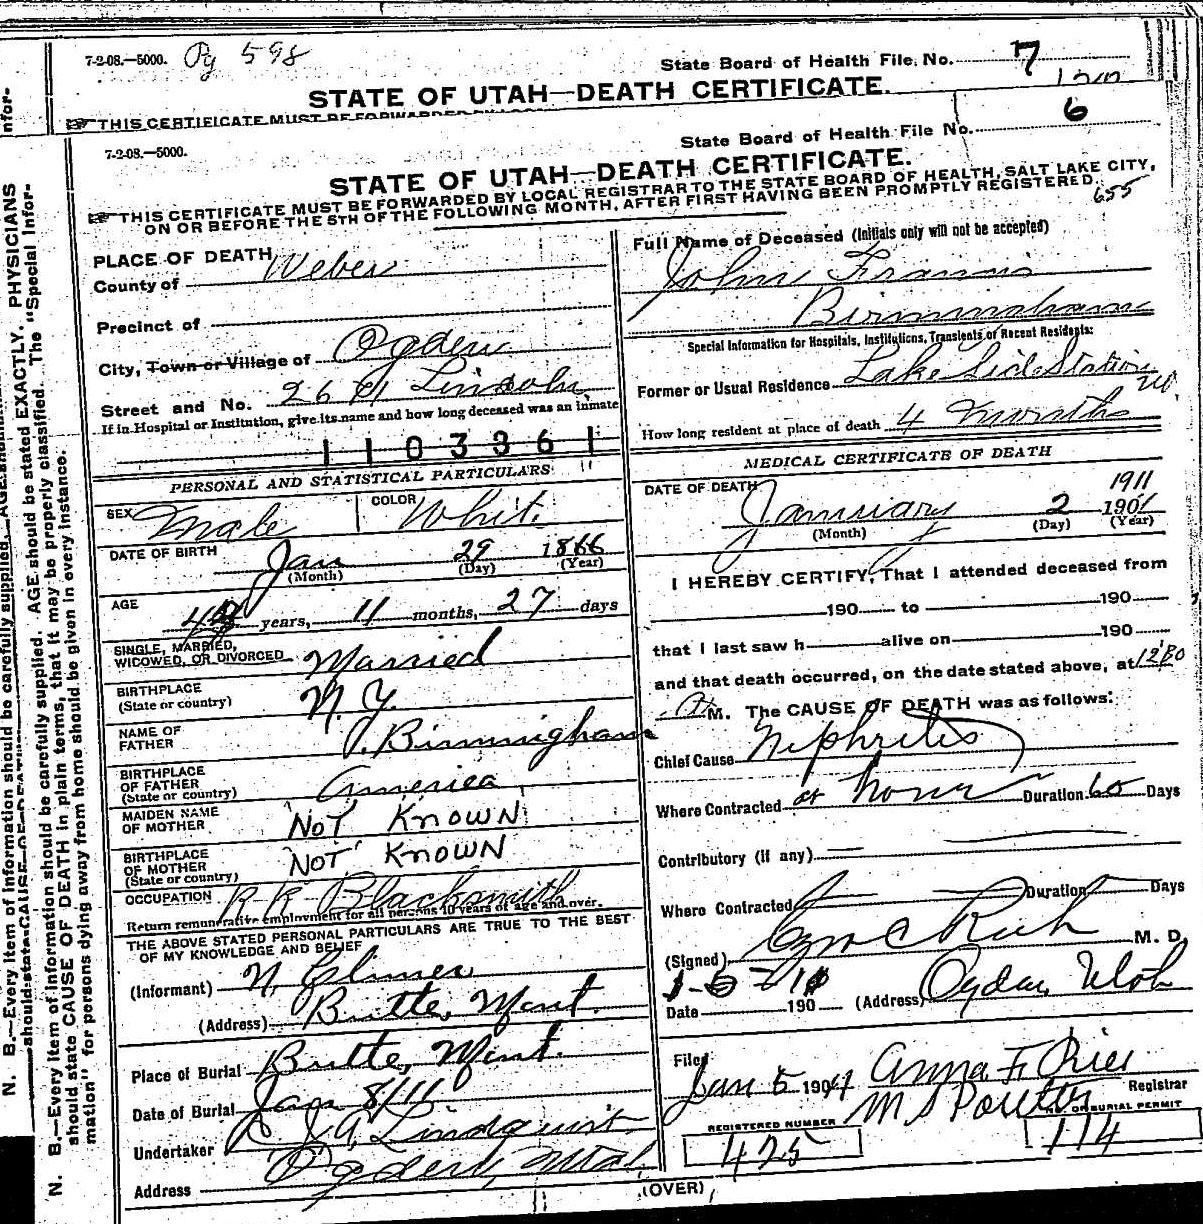 7-2-08.—5000. Pg 598
State Board of Health File No. 7
STATE OF UTAH—DEATH CERTIFICATE.
THIS CERTIFICATE MUST BE FORWARDED BY
7-2-08.—5000.
State Board of Health File No. 6
STATE OF UTAH—DEATH CERTIFICATE.
THIS CERTIFICATE MUST BE FORWARDED BY LOCAL REGISTRAR TO THE STATE BOARD OF HEALTH, SALT LAKE CITY,
ON OR BEFORE THE 5TH OF THE FOLLOWING MONTH, AFTER FIRST HAVING BEEN PROMPTLY REGISTERED.
655
PLACE OF DEATH
County of Weber
Precinct of
City, Town or Village of Ogden
Street and No. 2661 Lincoln
If in Hospital or Institution, give its name and how long deceased was an inmate
1103361
PERSONAL AND STATISTICAL PARTICULARS
SEX Male COLOR White
DATE OF BIRTH Jan 29 1866
(Month) (Day) (Year)
AGE 44 years, 11 months, 27 days
SINGLE, MARRIED,
WIDOWED, OR DIVORCED Married
BIRTHPLACE
(State or country) N.Y.
NAME OF
FATHER P. Birmingham
BIRTHPLACE
OF FATHER
(State or country) America
MAIDEN NAME
OF MOTHER NOT KNOWN
BIRTHPLACE
OF MOTHER
(State or country) NOT KNOWN
OCCUPATION R R Blacksmith
Return remunerative employment for all persons 10 years of age and over.
THE ABOVE STATED PERSONAL PARTICULARS ARE TRUE TO THE BEST
OF MY KNOWLEDGE AND BELIEF
(Informant) N.
(Address) Butte, Mont.
Place of Burial Butte, Mont.
Date of Burial Jan 8/11
Undertaker J. A. Lindquist
Address Ogden, Utah
Full Name of Deceased (Initials only will not be accepted)
John Francis
Birmingham
Special Information for Hospitals, Institutions, Transients or Recent Residents:
Former or Usual Residence Lake Side Station
How long resident at place of death 4 Months
MEDICAL CERTIFICATE OF DEATH
DATE OF DEATH 1911
January 2 1901
(Month) (Day) (Year)
I HEREBY CERTIFY, That I attended deceased from
190 to 190
that I last saw h alive on 190
and that death occurred, on the date stated above, at
A M. The CAUSE OF DEATH was as follows:
Chief Cause Nephritis
Where Contracted at home Duration 60 Days
Contributory (if any)
Where Contracted Duration Days
(Signed) C Rich M. D.
1-5-11
Date 190 (Address) Ogden Utah
Filed
Jan 5 190 Anna F. Ries
Registrar
M S Poulter
REGISTERED NUMBER
425
NO. OF BURIAL PERMIT
114
(OVER)
N. B.—Every item of information should be carefully supplied. AGE should be stated EXACTLY. PHYSICIANS
should state CAUSE OF DEATH in plain terms, that it may be properly classified. The "Special Infor-
mation" for persons dying away from home should be given in every instance.